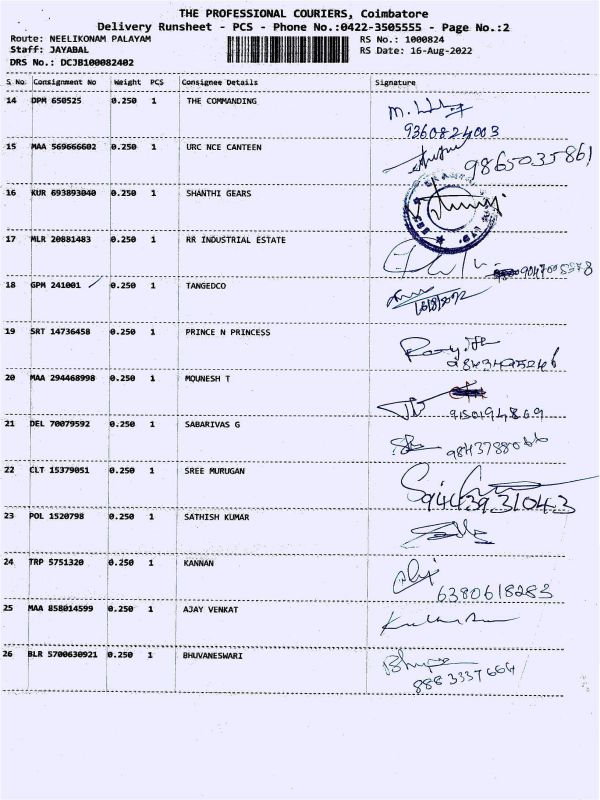 THE PROFESSIONAL COURIERS, Coimbatore
Delivery Runsheet - PCS - Phone No.:0422-3505555 - Page No.:2
Route: NEELIKONAM PALAYAM RS No.: 1000824
Staff: JAYABAL RS Date: 16-Aug-2022
DRS No.: DCJB100082402
S No. Consignment No Weight PCS Consignee Details Signature
14 DPM 650525 0.250 1 THE COMMANDING
9360824003
15 MAA 569666602 0.250 1 URC NCE CANTEEN
9865035861
16 KUR 693893040 0.250 1 SHANTHI GEARS
17 MLR 20881483 0.250 1 RR INDUSTRIAL ESTATE
18 GPM 241001 0.250 1 TANGEDCO
16/8/2022
19 SRT 14736458 0.250 1 PRINCE N PRINCESS
20 MAA 294468998 0.250 1 MOUNESH T
9150194869
21 DEL 70079592 0.250 1 SABARIVAS G
9843788066
22 CLT 15379051 0.250 1 SREE MURUGAN
9443931043
23 POL 1520798 0.250 1 SATHISH KUMAR
24 TRP 5751320 0.250 1 KANNAN
6380618283
25 MAA 858014599 0.250 1 AJAY VENKAT
26 BLR 5700630921 0.250 1 BHUVANESWARI
888 3337664